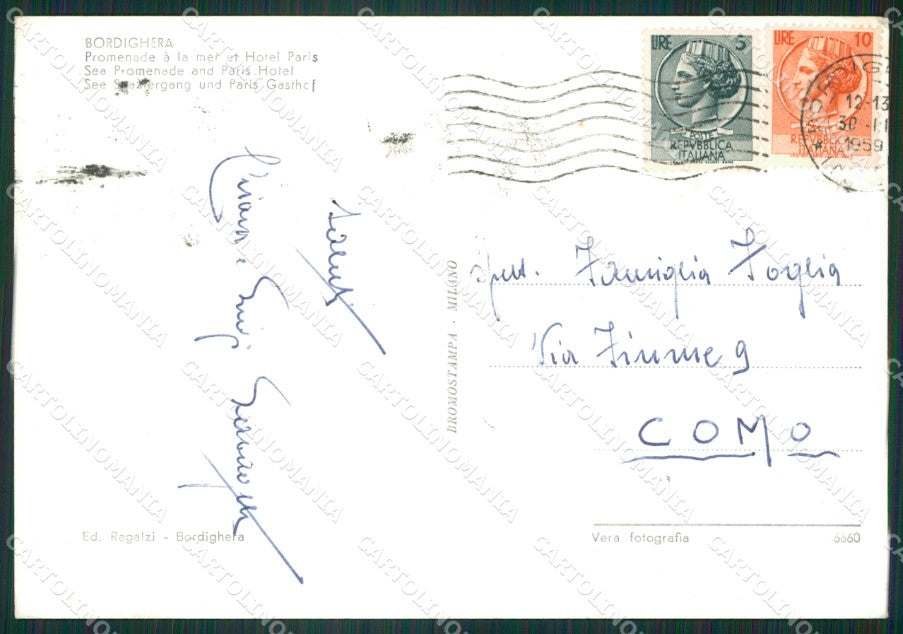 BORDIGHERA
Promenade à la mer et Hotel Paris
Sea Promenade and Paris Hotel
See Spaziergang und Paris Gasthof
LIRE 5
POSTE
REPVBBLICA
ITALIANA
LIRE 10
REPVBBLICA
ITALIANA
12-13
30
1959
saluti
Luigi
Spett. Famiglia Foglia
Via Fiume 9
COMO
BROMOSTAMPA - MILANO
Ed. Ragalzi - Bordighera
Vera fotografia
6660
CARTOLINOMANIA